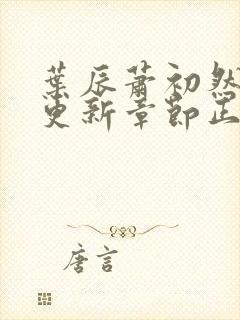 葉辰蕭初然
更新章節正
唐言